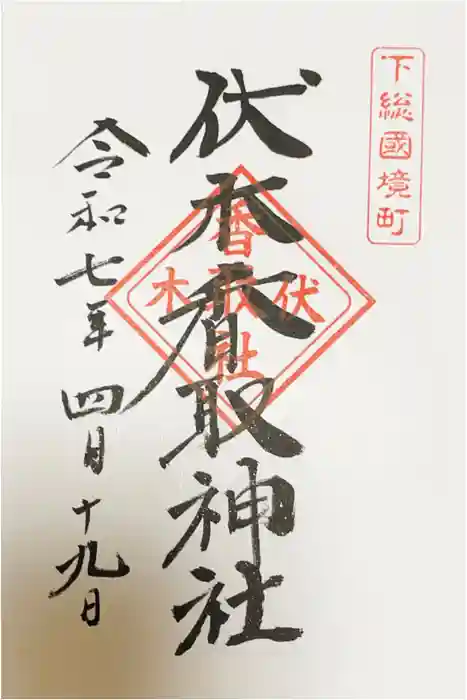 下総國境町
伏木香取神社
伏木
香取社
令和七年四月十九日